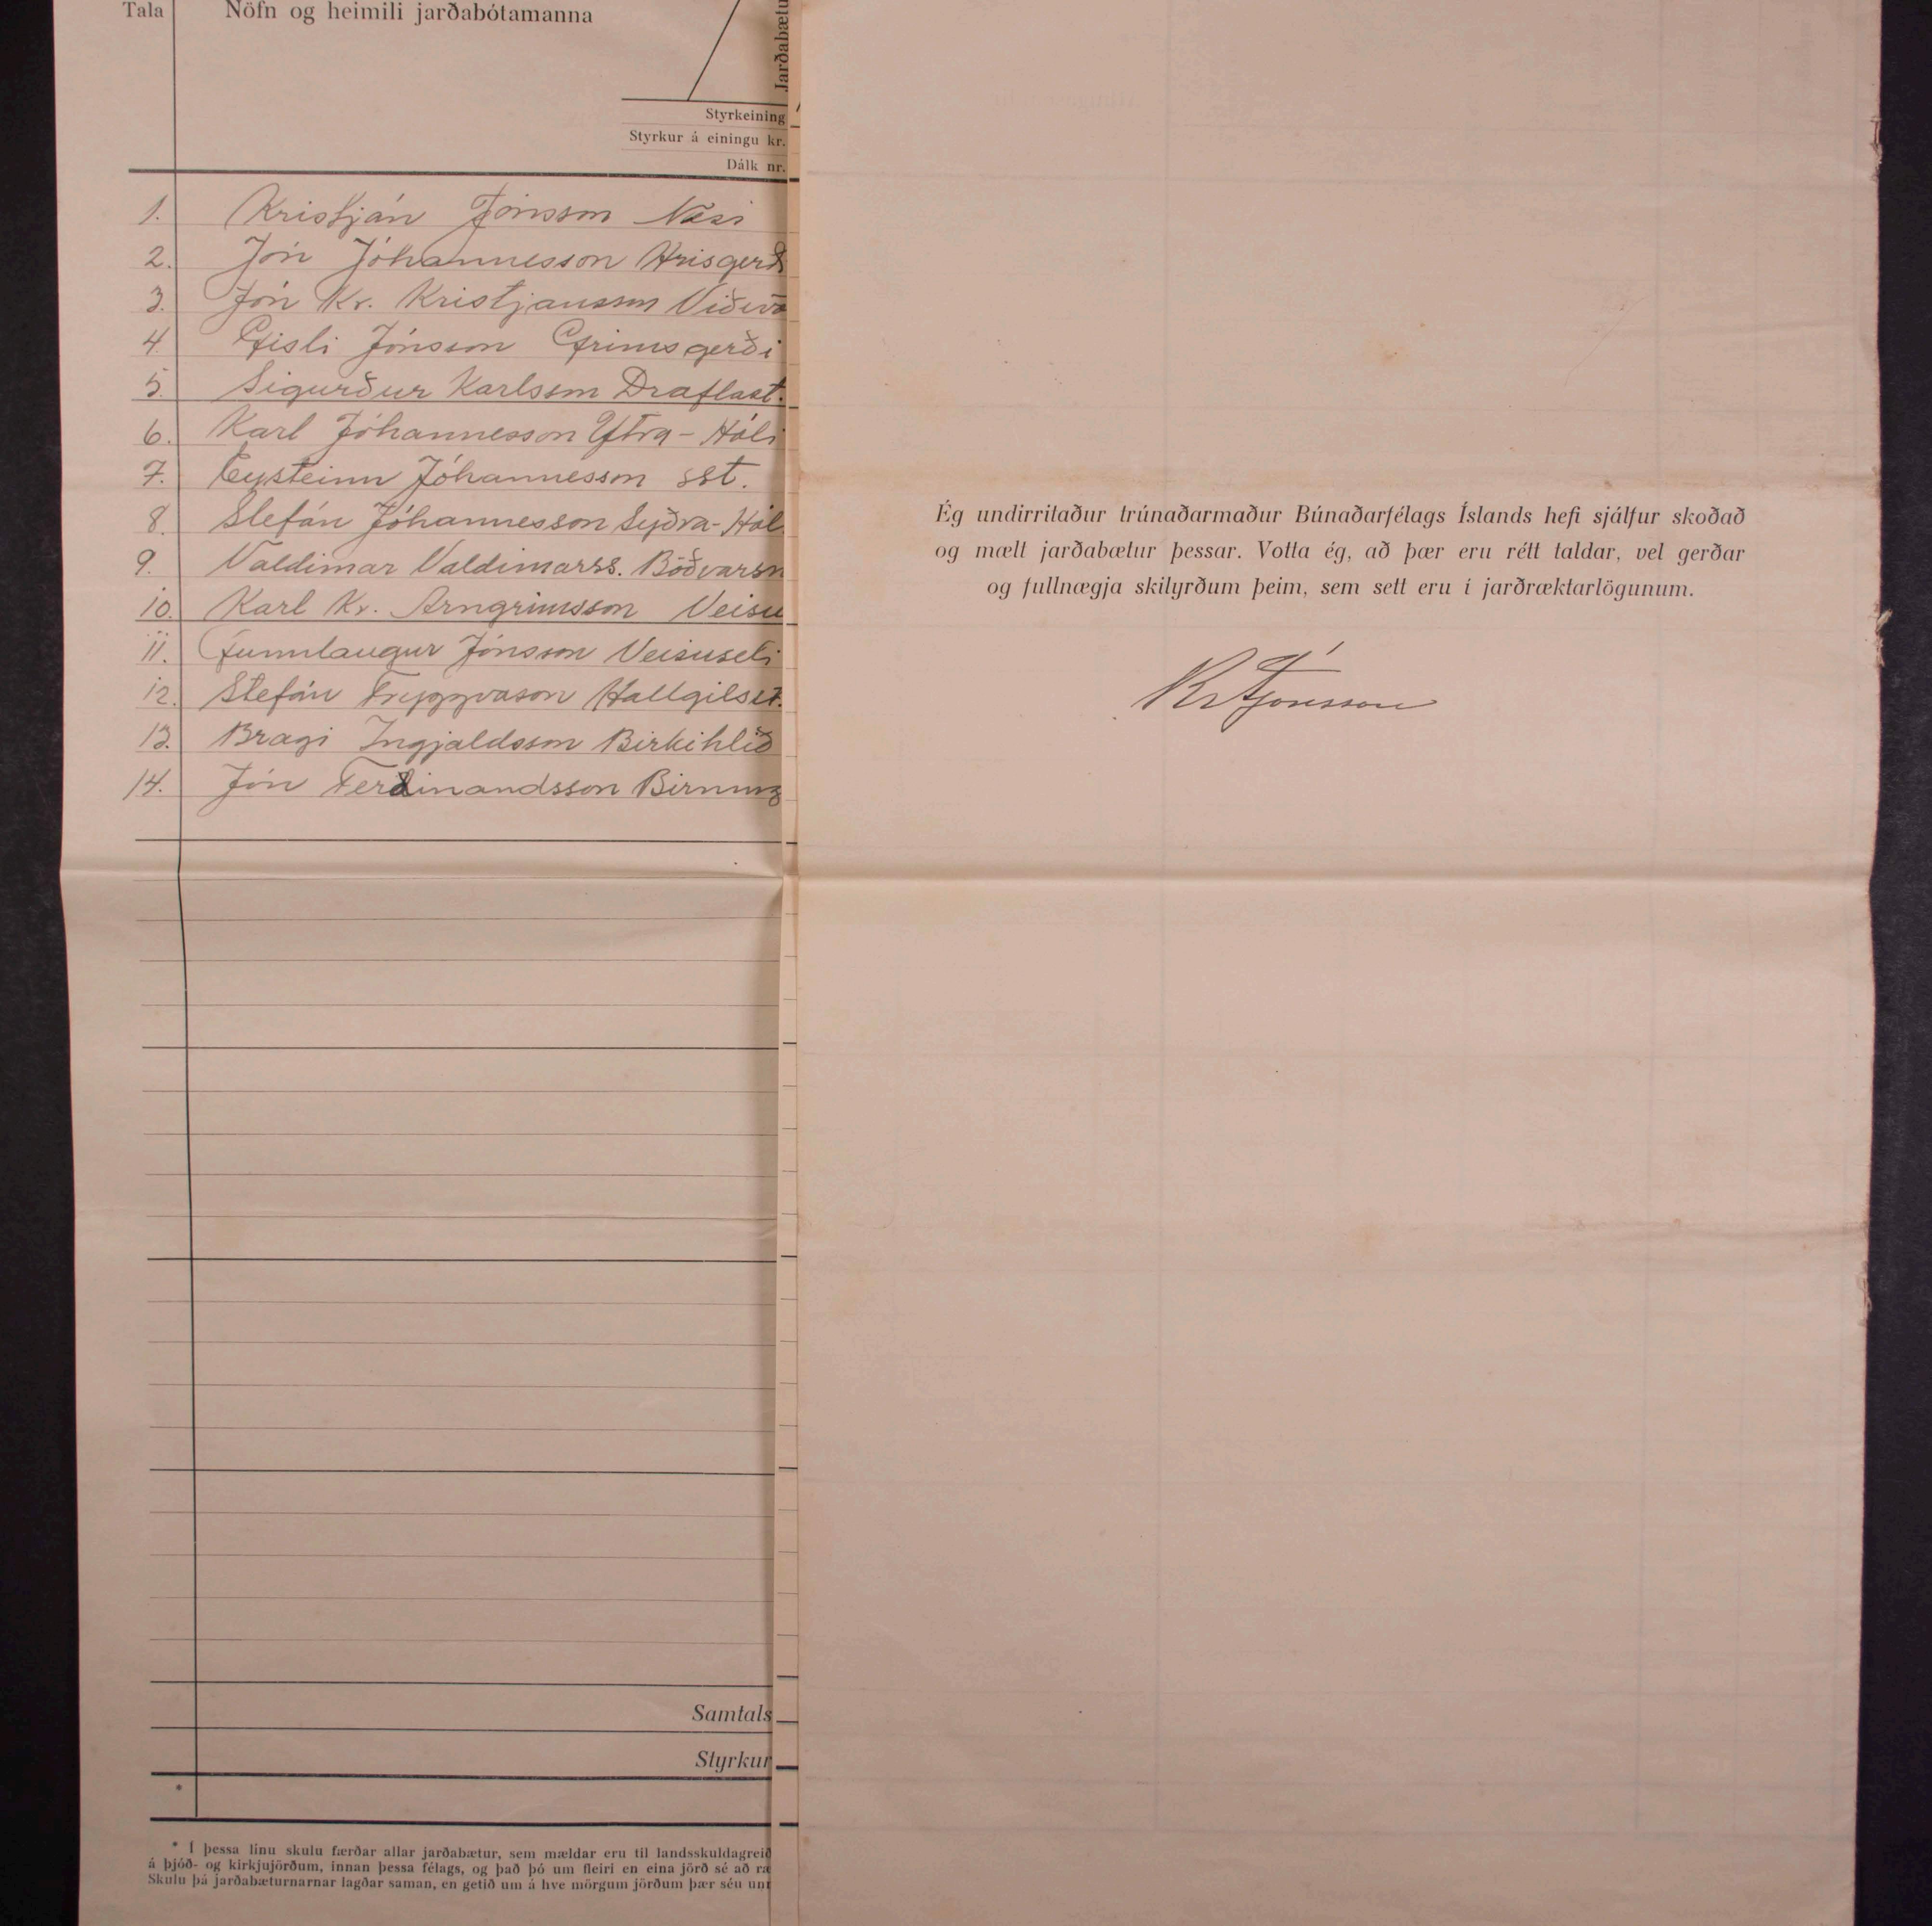 Tala Nöfn og heimili jarðabótamanna
Jarðabætu
Styrkeining
Styrkur á einingu kr.
Dálk nr.
1. Kristján Jónsson Nesi
2. Jón Jóhannesson Hrisgerð
3. Jón Kr. Kristjansson Viðivö
4. Gisli Jónsson Grimsgerði
5. Sigurður Karlsson Draflast.
6. Karl Jóhannesson Ytra-Hóli
7. Eysteinn Jóhannesson sst.
8. Stefán Jóhannesson Syðra-Hól
9. Valdimar Valdimarss. Böðvarsn
10. Karl Kr. Arngrimsson Veisu
11. Gunnlaugur Jónsson Veisuseli
12. Stefán Tryggvason Hallgilsst.
13. Bragi Ingjaldsson Birkihlið
14. Jón Ferdinandsson Birning
Samtals
Styrkur
*
* Í þessa línu skulu færðar allar jarðabætur, sem mældar eru til landsskuldagreið
á þjóð- og kirkjujörðum, innan þessa félags, og það þó um fleiri en eina jörð sé að ræ
Skulu þá jarðabæturnarnar lagðar saman, en getið um á hve mörgum jörðum þær séu unn
Ég undirritaður trúnaðarmaður Búnaðarfélags Íslands hefi sjálfur skoðað
og mælt jarðabætur þessar. Votta ég, að þær eru rétt taldar, vel gerðar
og fullnægja skilyrðum þeim, sem sett eru í jarðræktarlögunum.
Kr Jónsson